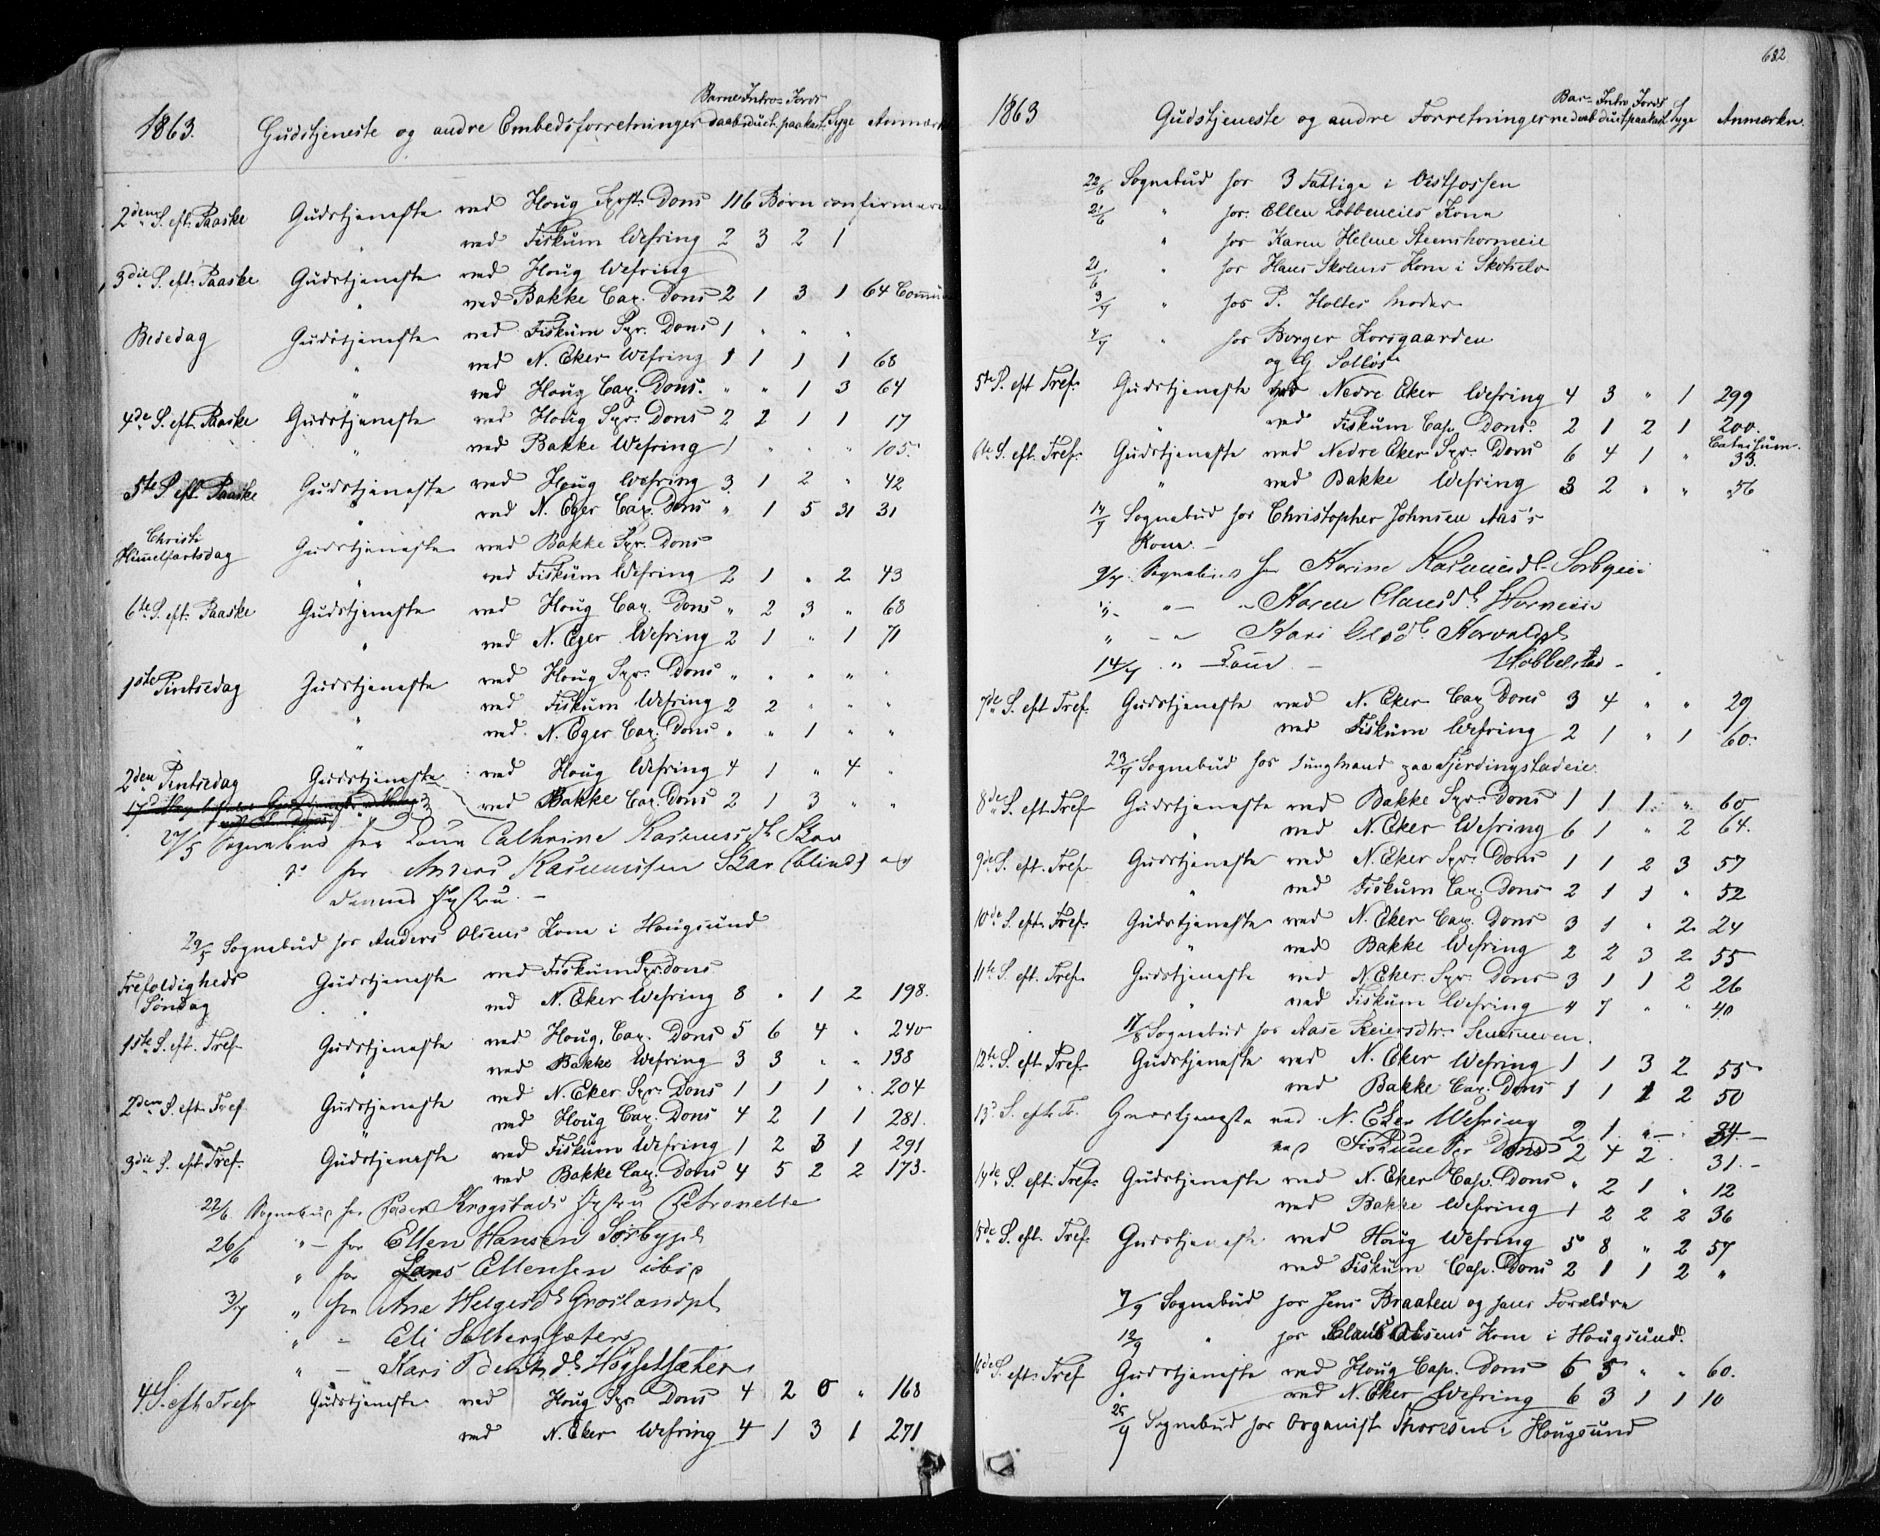 1863. Gudstjeneste og andre Embedsforretninger Barnedaab Introduct. Jordspaakast. Syge Anmærk
2den S. eft. Paaske Gudstjeneste ved Houg Dons 116 Børn confirmere
" ved Fiskum Wefring 2 3 2 1
3die S. eft. Paaske Gudstjeneste ved Houg Wefring
" ved Bakke Cap. Dons 2 1 3 1 64
Bededag Gudstjeneste ved Fiskum Spr. Dons 1 " " "
" ved N. Eker Wefring 1 1 1 1 68
" ved Houg Cap. Dons. " " 1 3 64
4de S. eft. Paaske Gudstjeneste ved Houg Spr. Dons 2 2 1 1 17
" ved Bakke Wefring 1 " " " 105
5te S. eft Paaske Gudstjeneste ved Houg Wefring 3 1 2 " 42
" ved N. Eger Cap. Dons " 1 5 31 31
Christi
Himmelfartsdag Gudstjeneste ved Bakke Spr. Dons
" ved Fiskum Wefring 2 1 " 2 43
6te S. eft. Paaske Gudstjeneste ved Houg Cap. Dons " 2 3 " 68
" ved N. Eger Wefring 2 1 " 1 71
1ste Pintsedag Gudstjeneste ved Houg Spr. Dons " " " " "
" ved Fiskum Wefring 2 2 " " "
" ved N. Eger Cap. Dons " " 1 " "
2den Pintsedag Gudstjeneste ved Houg Wefring 4 1 " 4 "
ved Bakke Cap. Dons 2 1 3 " "
27/5 Sognebud hos Cathrine Rasmusdt. Skar
do hos Anders Rasmussen Skar (blind) og
dennes Hustru. -
29/5 Sognebud hos Anders Olsens Kone i Hougsund
Trefoldigheds
Søndag Gudstjeneste ved Fiskum Spr. Dons
" ved N. Eker Wefring 8 " 1 2 198.
1ste S. eft. Tref. Gudstjeneste ved Houg. Cap. Dons 5 6 4 " 240
" ved Bakke Wefring 3 3 " " 138
2den S. eft. Tref. Gudstjeneste ved N. Eker Spr. Dons 1 1 1 " 204
" ved Houg Cap. Dons 4 2 1 1 281.
3die S. eft. Tref. Gudstjeneste ved Fiskum Wefring 1 2 3 1 291
ved Bakke Cap. Dons 4 5 2 2 173.
22/6. Sognebud hos Peder Krogstads Hustru Petronelle
26/6 " - hos Ellen Hansen Sørbygd
" hos Lars Ellensen ibid
3/7 " hos Ane Helgesdt. Groslandpl
" - Eli Solbergsæter
" - Kari Bentsdt. Høgsetsæter
4 S. eft Tref. Gudstjeneste ved Houg Spr. Dons 4 2 0 " 168
ved N. Eker Wefring 4 1 3 1 271
682
1863 Gudstjeneste og andre Forretninger Barnedaab Introduct. Jordspaakast Syge Anmærkn.
22/6 Sognebud hos 3 Fattige i Vestfossen
21/6 " hos Ellen Løbbeneies Kone
" hos Karen Helene Steenshorneie
21/6 " hos Hans Skolens Kone i Skotselv
3/7 " hos P. Holtes Moder
4/7 " hos Borger Korsgaarden
og G Solløs
5te S. eft Tref. Gudstjeneste ved Nedre Eker Wefring 4 3 " 1 299
" ved Fiskum Cap. Dons. 2 1 2 1 200.
6te S. eft. Tref. Gudstjeneste ved Nedre Eker Spr. Dons 6 4 1 " 33.
" ved Bakke Wefring 3 2 " " 56
14/7 Sognebud hos Christopher Johnsen Aas's
Kone. -
9/7. Sognebud hos Karine Rasmusdt.
" " - " Karen Clausdt. Horneie
" - " Kari Olsdt. Korvald
14/7 " -
7de S. eft Tref. Gudstjeneste ved N. Eker Cap. Dons 3 4 " " 29
ved Fiskum Wefring 2 1 " 1 60.
23/7 Sognebud hos Lungmand paa Fjerdingstadeie.
8de S. eft. Tref Gudstjeneste ved Bakke Spr. Dons 1 1 1 " 60
" ved N. Eker Wefring 6 1 " 2 64.
9de S. eft. Tref Gudstjeneste ved N. Eker Spr. Dons 1 1 2 3 57
" ved Fiskum Cap. Dons 2 1 1 " 52
10de S. eft. Tref. Gudstjeneste ved N. Eker Cap. Dons 3 1 " 2 24
" ved Bakke Wefring 2 2 3 2 55
11te S. eft. Tref. Gudstjeneste ved N. Eker Spr. Dons 3 1 1 2 26
" ved Fiskum Wefring " 7 " " 40
17/8 Sognebud hos Aase Reiersdtr.
12te S. eft. Tref. Gudstjeneste ved N. Eker Wefring 1 1 3 2 55
ved Bakke Cap. Dons 1 1 1 2 50
13d S. eft. Tr. Gudstjeneste ved N. Eker Wefring 2 1 " -
ved Fiskum Spr Dons 2 4 2 . 31. -
14de S. eft. Tref. Gudstjeneste ved N. Eker Cap. Dons " 2 1 " 12
ved Bakke Wefring 1 2 2 2 36
5de S. eft. Tref. Gudstjeneste ved Houg Wefring 5 8 " 2 57
ved Fiskum Cap. Dons 2 1 1 2 "
7/9 Sognebud hos Jens Braaten og hans Forældre
12/9 " hos Claus Olsens Kone i Hougsund.
16de S. eft. Tref Gudstjeneste ved Houg Cap. Dons 6 5 " " 60.
ved N. Eker Wefring 6 3 1 1 10
25/9 Sognebud hos Organist Thoresen i Hougsund